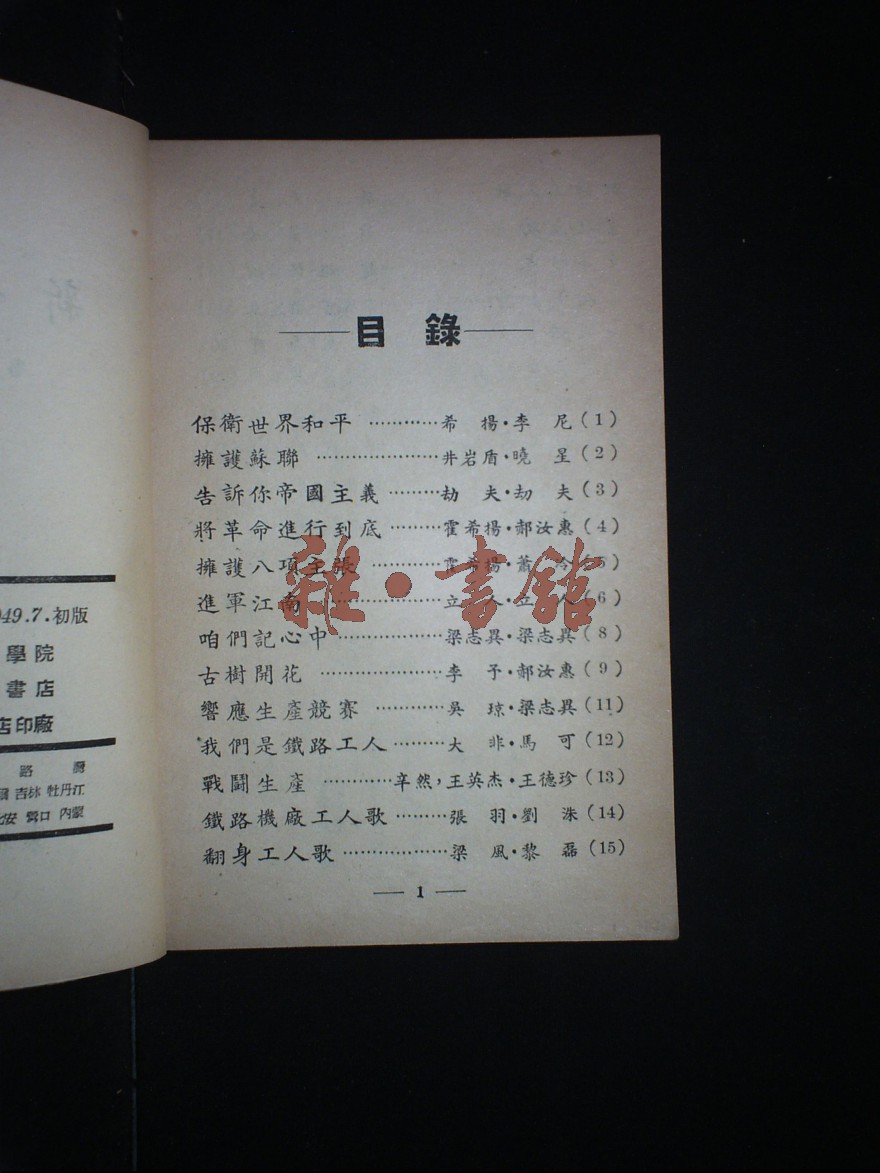 新
1949.7.初版
學院
書店
店印廠
路
吉林 牡丹江
安 營口 內蒙
目錄
保衛世界和平…………希揚·李尼(1)
擁護蘇聯…………井岩盾·曉星(2)
告訴你帝國主義………劫夫·劫夫(3)
將革命進行到底………霍希揚·郝汝惠(4)
擁護八項主張………霍希揚·蕭(5)
進軍江南………立人·立人(6)
咱們記心中…………梁志異·梁志異(8)
古樹開花…………李予·郝汝惠(9)
響應生產競賽…………吳琼·梁志異(11)
我們是鐵路工人………大非·馬可(12)
戰鬭生產…………辛然,王英杰·王德珍(13)
鐵路機廠工人歌………張羽·劉洙(14)
翻身工人歌…………梁風·黎磊(15)
— 1 —
雜·書館